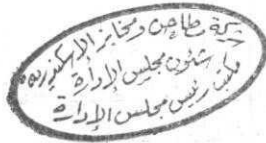 شركة مطاحن ومخابز الاسكندرية
شئون مجلس الإدارة
مكتب رئيس مجلس الإدارة